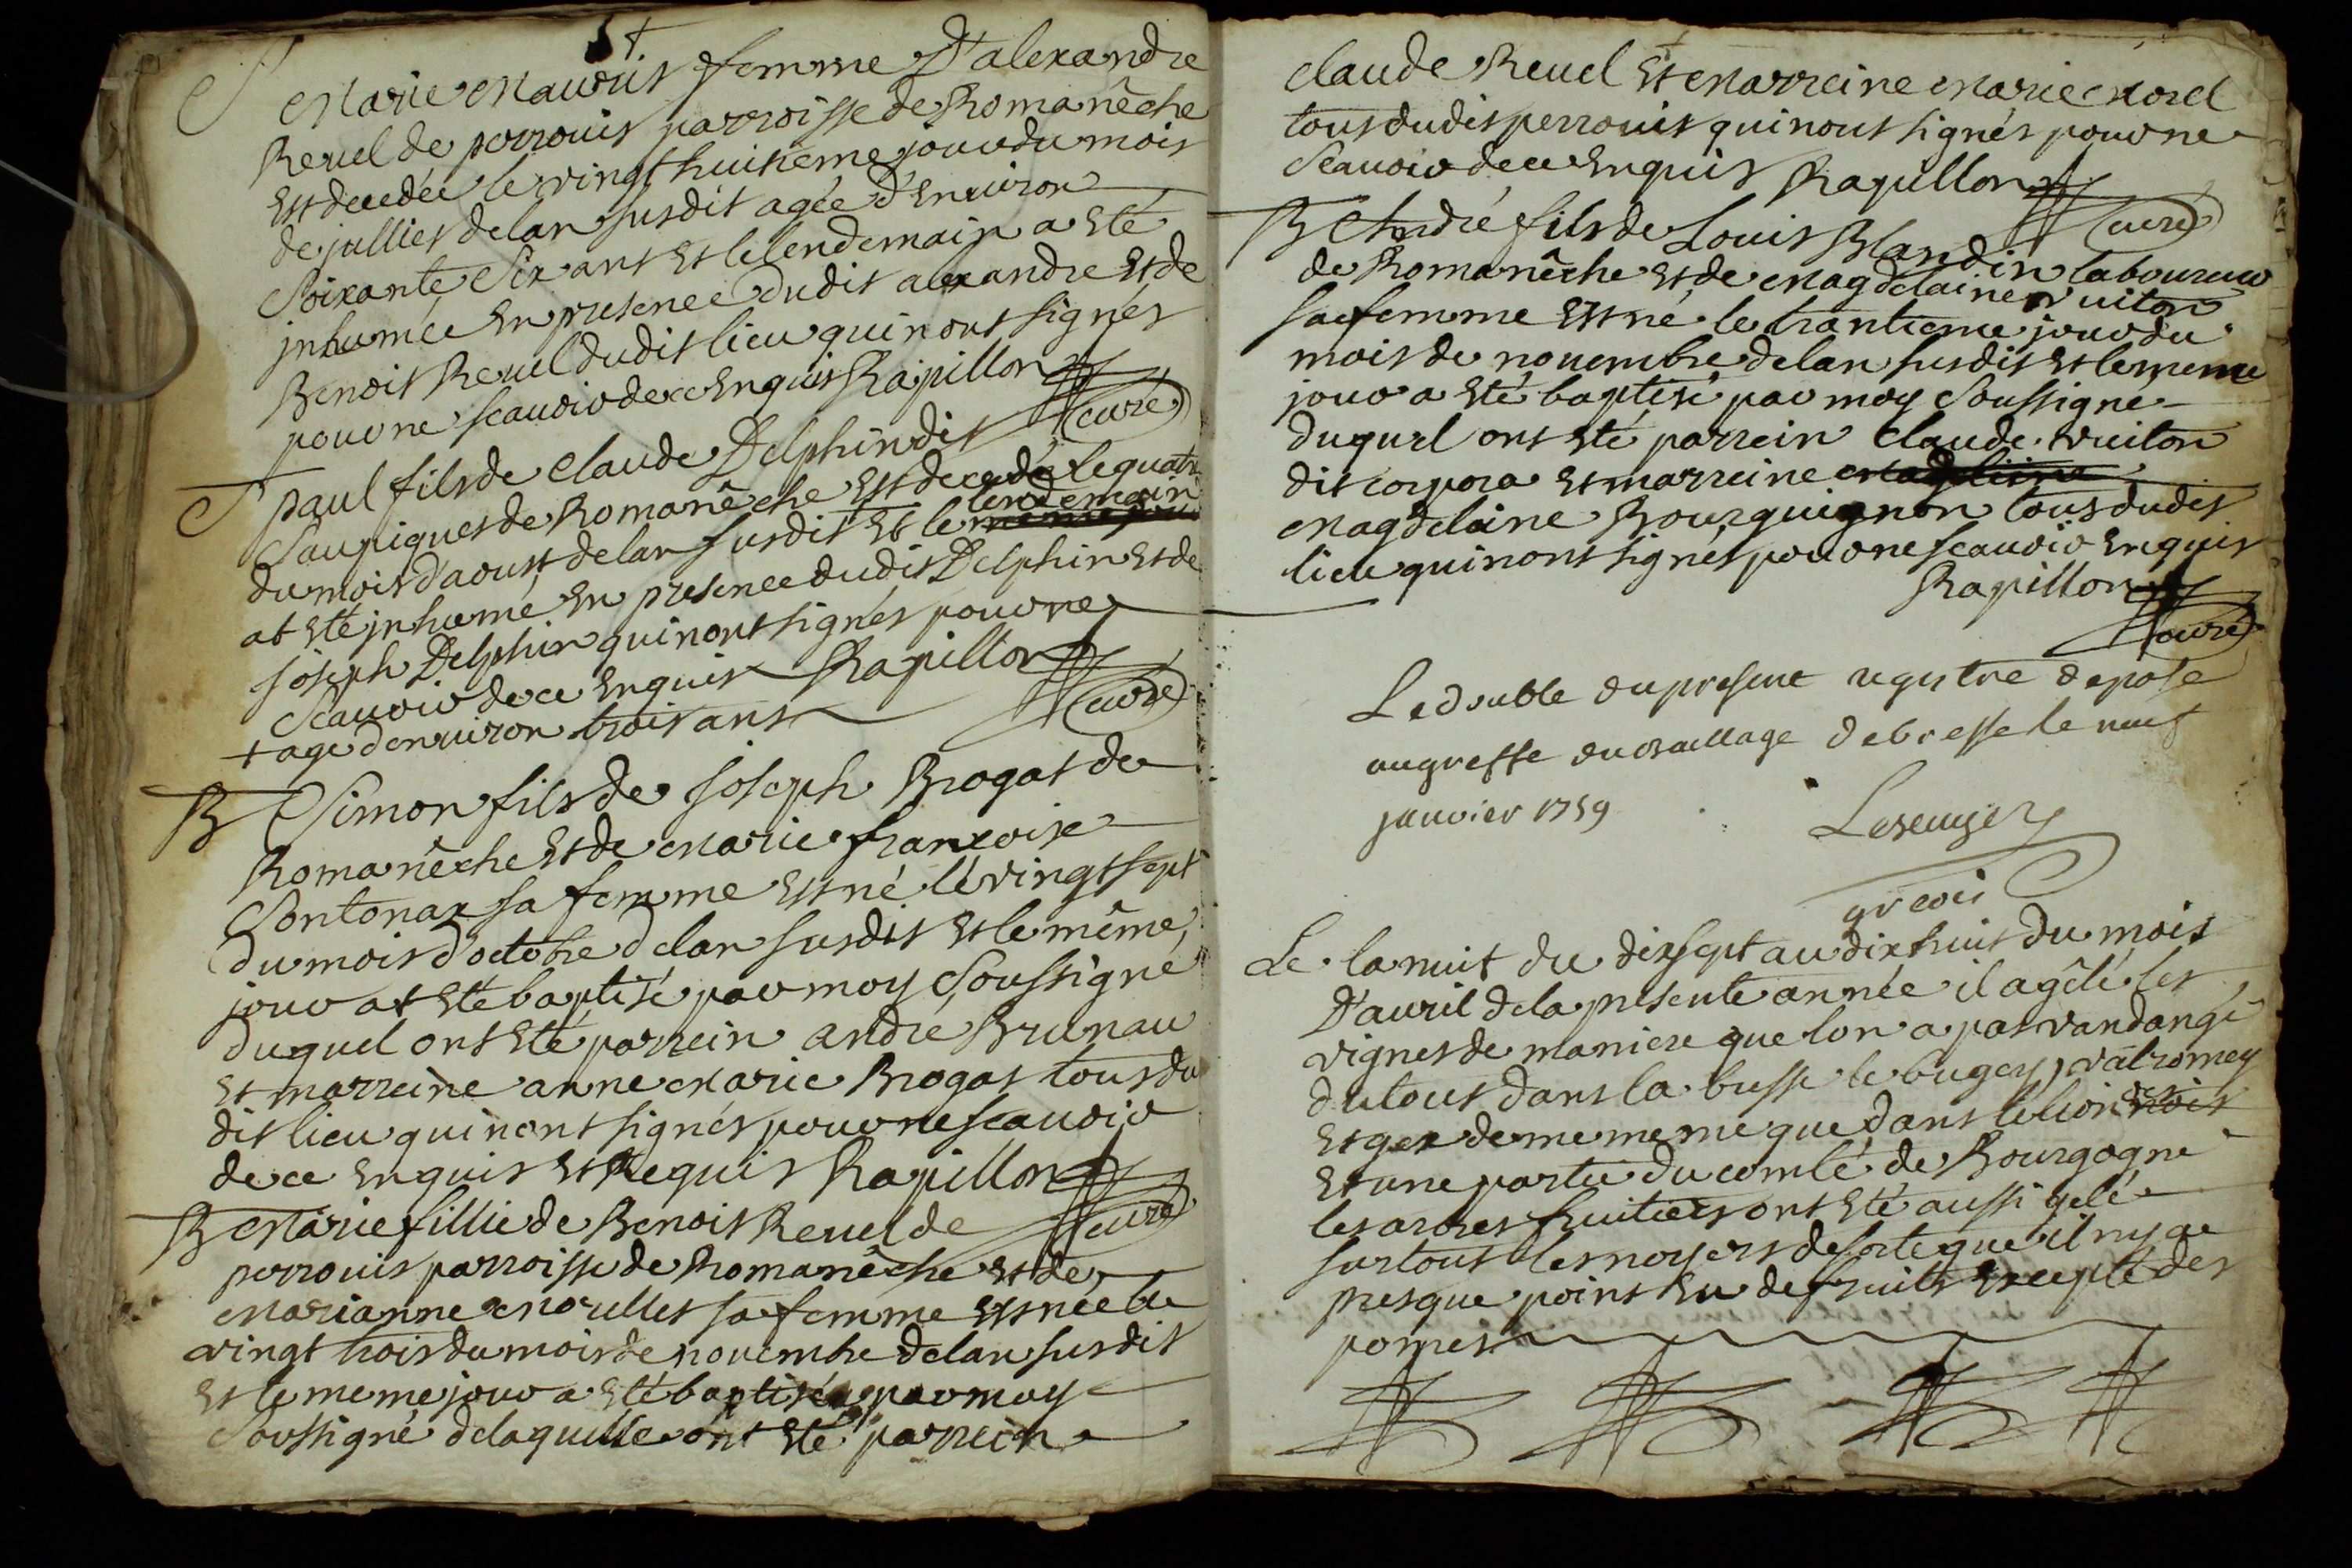 S Marie Mauris femme D'alexandre
Revel de perrouis parroisse de Romanêche
Est decedée le vingt huitieme jour du mois
de jullies delan susdit agée d'Environ
Soixante Six ans Et le lendemain a Eté
jnhumée En presence dudit alexandre Et de
Benoit Revel dudit lieu qui nont signés
pour ne scauoir de ce Enquis Rapillon
curé
S paul fils de Claude Delphin dit
Saupiques de Romanêche Est decedé le quatre
du mois d'aoust delan susdit Et le lendemain
at Eté jnhumé En presence dudit Delphin Et de
joseph Delphin qui nont signés pour ne
Scauoir de ce Enquis Rapillon
curé
+ agé denuiron trois ans
B Simon fils de joseph Brogat de
Romanêche Et de Marie francoise
Contonax sa femme Est né le vingt sept
du mois d'octobre delan susdit Et le même
jour at Eté baptisé par moy Soussigné
duquel ont Eté parrein andré Brunau
Et marreine anne Marie Brogat tous du
dit lieu qui nont signés pour ne scauoir
de ce Enquis Et Requis Rapillon
curé
B Marie fillie de Benoit Revel de
perrouis parroisse de Romanêche Et de
Marianne Morellet sa femme Est née le
vingt trois du mois de nouembre delan susdit
Et le meme jour a Eté baptisée par moy
Soussigné delaquelle ont Eté parrein
Claude Revel Et Marreine Marie Morel
tous dudit perrouis qui nont signés pour ne
Scauoir de ce Enquis Rapillon
curé
B André fils de Louis Blandin laboureur
de Romanêche Et de Magdelaine vuiton
sa femme Est né le trantieme jour du
mois de nouembre delan susdit Et le meme
jour a Eté baptisé par moy Soussigné
duquel ont Eté parrein Claude vuiton
dit corpora Et marreine
Magdelaine Bourguignon tous dudit
lieu qui nont signés pour ne scauoir Enquis
Rapillon
curé
Le double du present registre deposé
au greffe du bailliage de bresse le neuf
janvier 1759
Le la nuit du dix sept au dix huit du mois
D'auril dela presente année il a gêlé les
vignes de maniere que lon a pas vandangé
du tout dans la bresse le bugey, valromey
Et gex de me meme que dans
Et une partie du comté de Bourgogne
les arbres fruitiers ont Eté aussi gelé
sur tout les noyers de sorte que il ny a
presque point Eu de fruits Excepté des
pomes